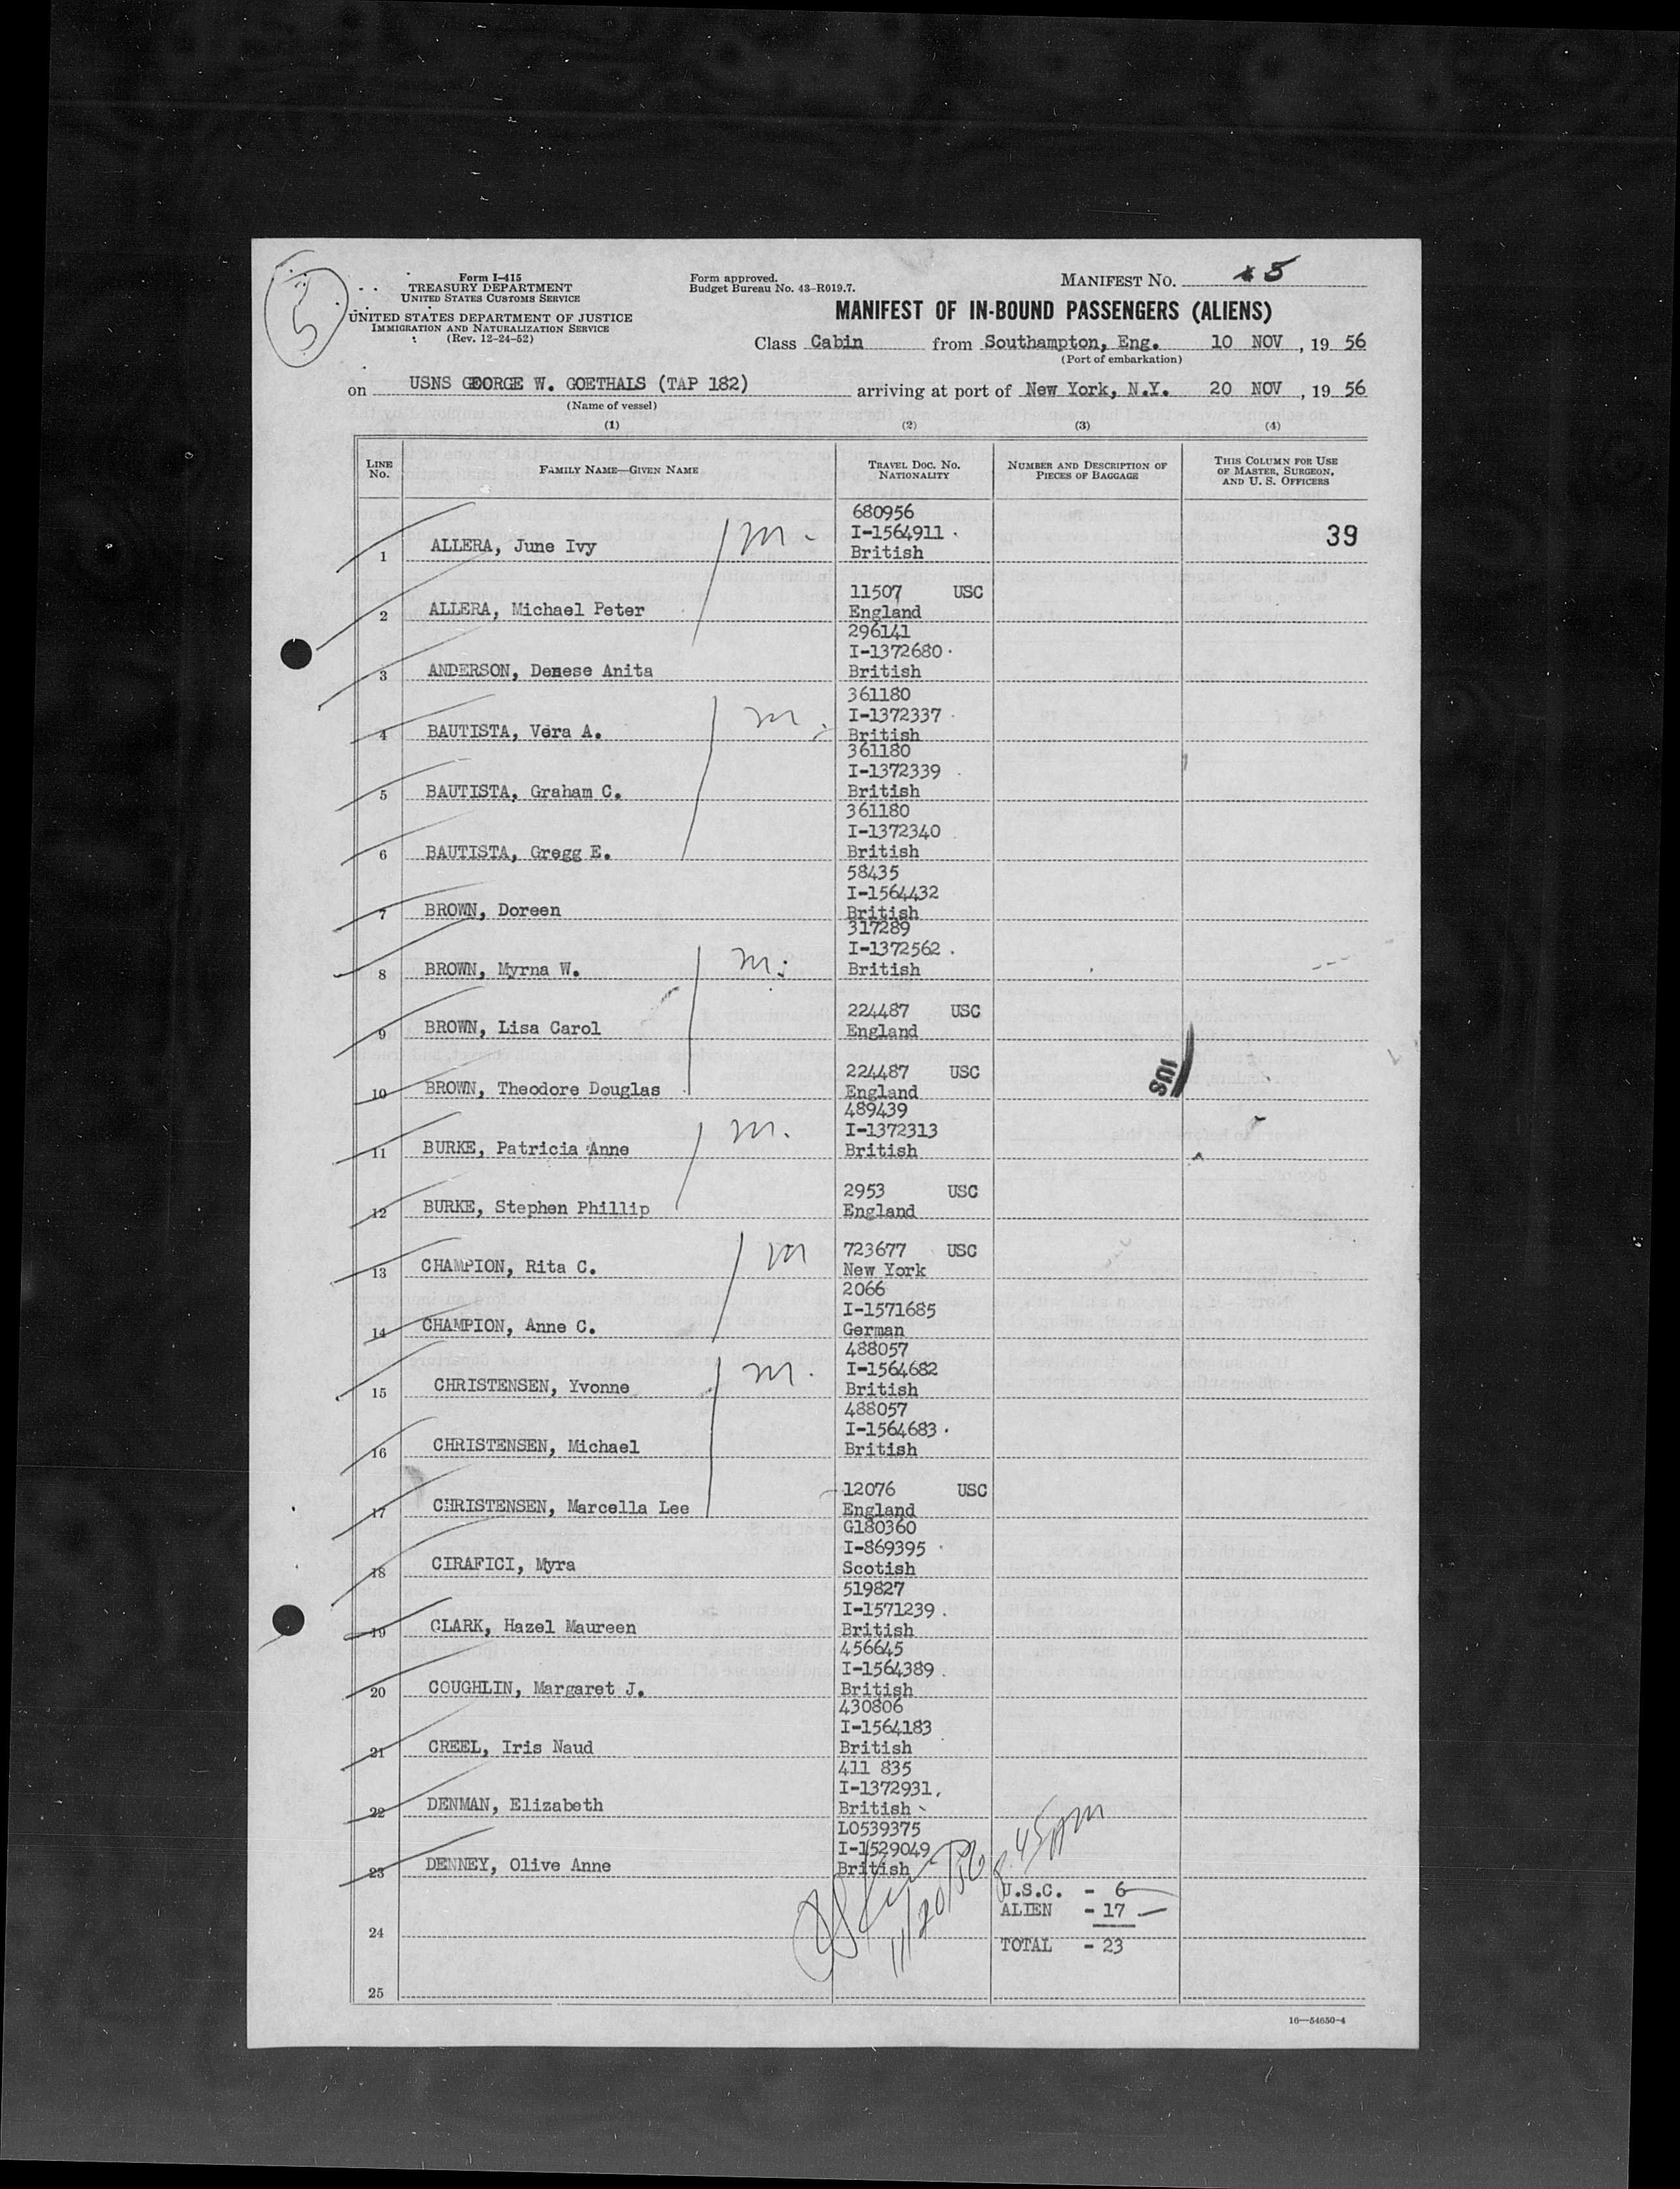 5
Form I-415
TREASURY DEPARTMENT
UNITED STATES CUSTOMS SERVICE
UNITED STATES DEPARTMENT OF JUSTICE
IMMIGRATION AND NATURALIZATION SERVICE
(Rev. 12-24-52)
Form approved.
Budget Bureau No. 43-R019.7.
MANIFEST NO. 5
MANIFEST OF IN-BOUND PASSENGERS (ALIENS)
Class Cabin from Southampton, Eng. 10 NOV , 19 56
(Port of embarkation)
on USNS GEORGE W. GOETHALS (TAP 182) arriving at port of New York, N.Y. 20 NOV , 19 56
(Name of vessel)
(1) (2) (3) (4)
LINE NO. FAMILY NAME—GIVEN NAME TRAVEL DOC. NO. NATIONALITY NUMBER AND DESCRIPTION OF PIECES OF BAGGAGE THIS COLUMN FOR USE OF MASTER, SURGEON, AND U. S. OFFICERS
680956
I-1564911
1 ALLERA, June Ivy m British 39
11507 USC
2 ALLERA, Michael Peter England
296141
I-1372680
3 ANDERSON, Denese Anita British
361180
I-1372337
4 BAUTISTA, Vera A. m British
361180
I-1372339
5 BAUTISTA, Graham C. British
361180
I-1372340
6 BAUTISTA, Gregg E. British
58435
I-1564432
7 BROWN, Doreen British
317289
I-1372562
8 BROWN, Myrna W. m British
224487 USC
9 BROWN, Lisa Carol England
224487 USC
10 BROWN, Theodore Douglas England
SUI
489439
I-1372313
11 BURKE, Patricia Anne m. British
2953 USC
12 BURKE, Stephen Phillip England
723677 USC
13 CHAMPION, Rita C. m New York
2066
I-1571685
14 CHAMPION, Anne C. German
488057
I-1564682
15 CHRISTENSEN, Yvonne m. British
488057
I-1564683
16 CHRISTENSEN, Michael British
12076 USC
17 CHRISTENSEN, Marcella Lee England
G180360
I-869395
18 CIRAFICI, Myra Scotish
519827
I-1571239
19 CLARK, Hazel Maureen British
456645
I-1564389
20 COUGHLIN, Margaret J. British
430806
I-1564183
21 CREEL, Iris Naud British
411 835
I-1372931
22 DENMAN, Elizabeth British
L0539375
I-1529049
23 DENNEY, Olive Anne British
11/20/56 8.45 AM
U.S.C. - 6
ALIEN - 17
24
TOTAL - 23
25
16—54650-4